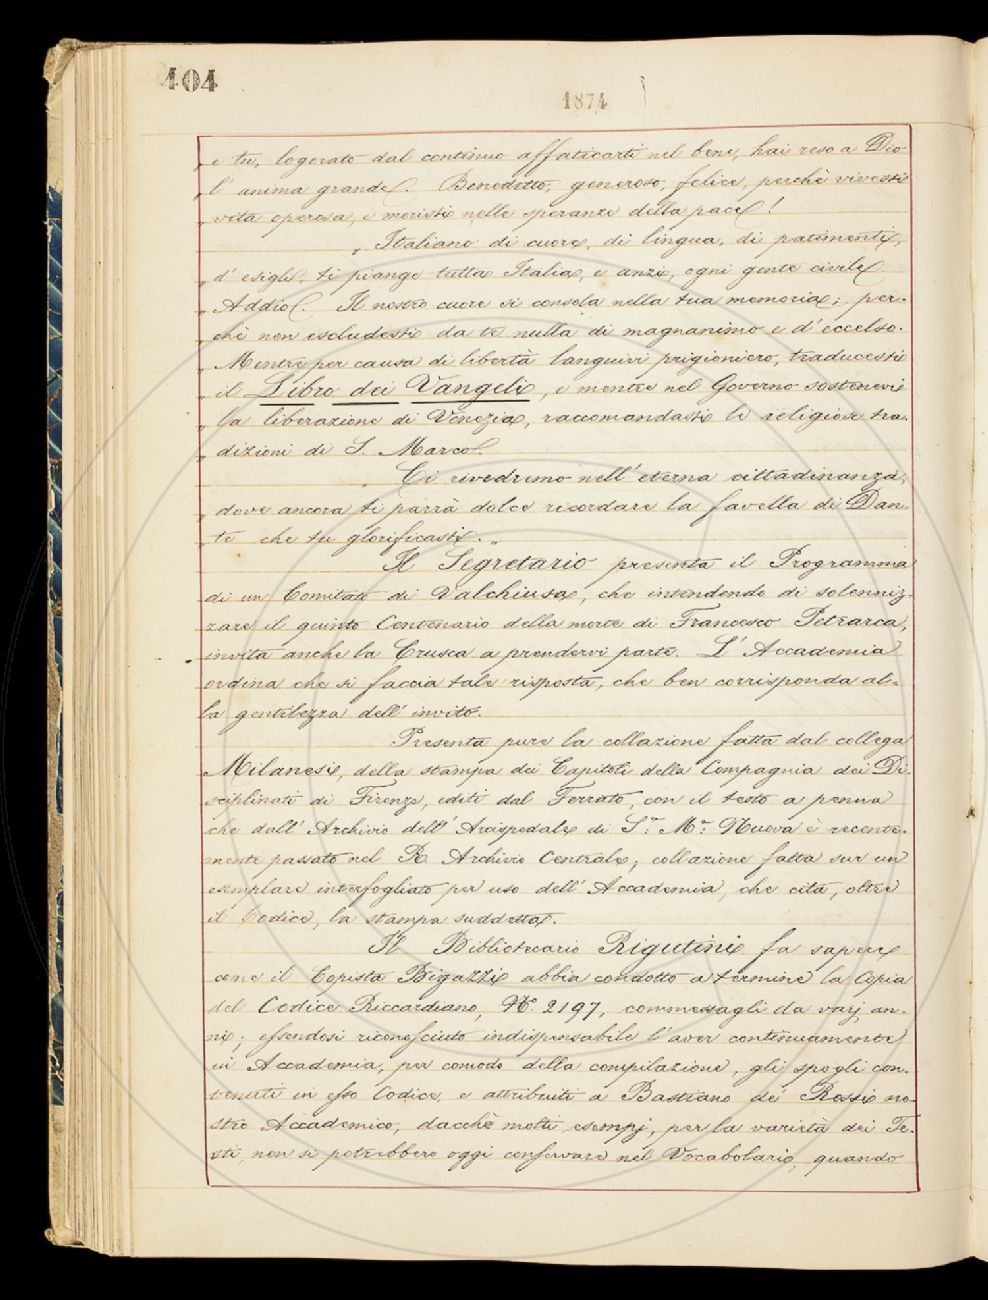 404
1874
„ e tu, logorato dal continuo affaticarti nel bene, hai reso a Dio
„ l'anima grande. Benedetto, generoso, felice, perchè vivesti
„ vita operosa, e moristi nelle speranze della pace!
„ Italiano di cuore, di lingua, di patimenti,
„ d'esigli, ti piange tutta Italia, e anzi, ogni gente civile.
„ Addio. Il nostro cuore si consola nella tua memoria; per-
„ chè non escludesti da te nulla di magnanimo e d'eccelso.
„ Mentre per causa di libertà languivi prigioniero, traducesti
„ il Libro dei Vangeli, e mentre nel Governo sostenevi
„ la liberazione di Venezia, raccomandasti le religiose tra-
„ dizioni di S. Marco.
„ Ci rivedremo nell'eterna cittadinanza,
„ dove ancora ti parrà dolce ricordare la favella di Dan-
„ te che tu glorificasti. „
Il Segretario presenta il Programma
di un Comitato di Valchiusa, che intendendo di solenniz-
zare il quinto Centenario della morte di Francesco Petrarca,
invita anche la Crusca a prendervi parte. L'Accademia
ordina che si faccia tale risposta, che ben corrisponda al-
la gentilezza dell'invito.
Presenta pure la collazione fatta dal collega
Milanesi, della stampa dei Capitoli della Compagnia dei Di-
sciplinati di Firenze, editi dal Ferrato, con il testo a penna
che dall'Archivio dell'Arcispedale di S.ta M.a Nuova è recente-
mente passato nel R. Archivio Centrale; collazione fatta sur un
esemplare interfogliato per uso dell'Accademia, che cita, oltre
il Codice, la stampa suddetta.
Il Bibliotecario Rigutini fa sapere
come il Copista Bigazzi abbia condotto a termine la Copia
del Codice Riccardiano, N. 2197, commessagli da varj an-
ni; essendosi riconosciuto indispensabile l'aver continuamente
in Accademia, per comodo della compilazione, gli spogli con-
tenuti in esso Codice, e attribuiti a Bastiano de' Rossi no-
stro Accademico, dacchè molti esempj, per la varietà dei Te-
sti, non si potrebbero oggi conservare nel Vocabolario, quando